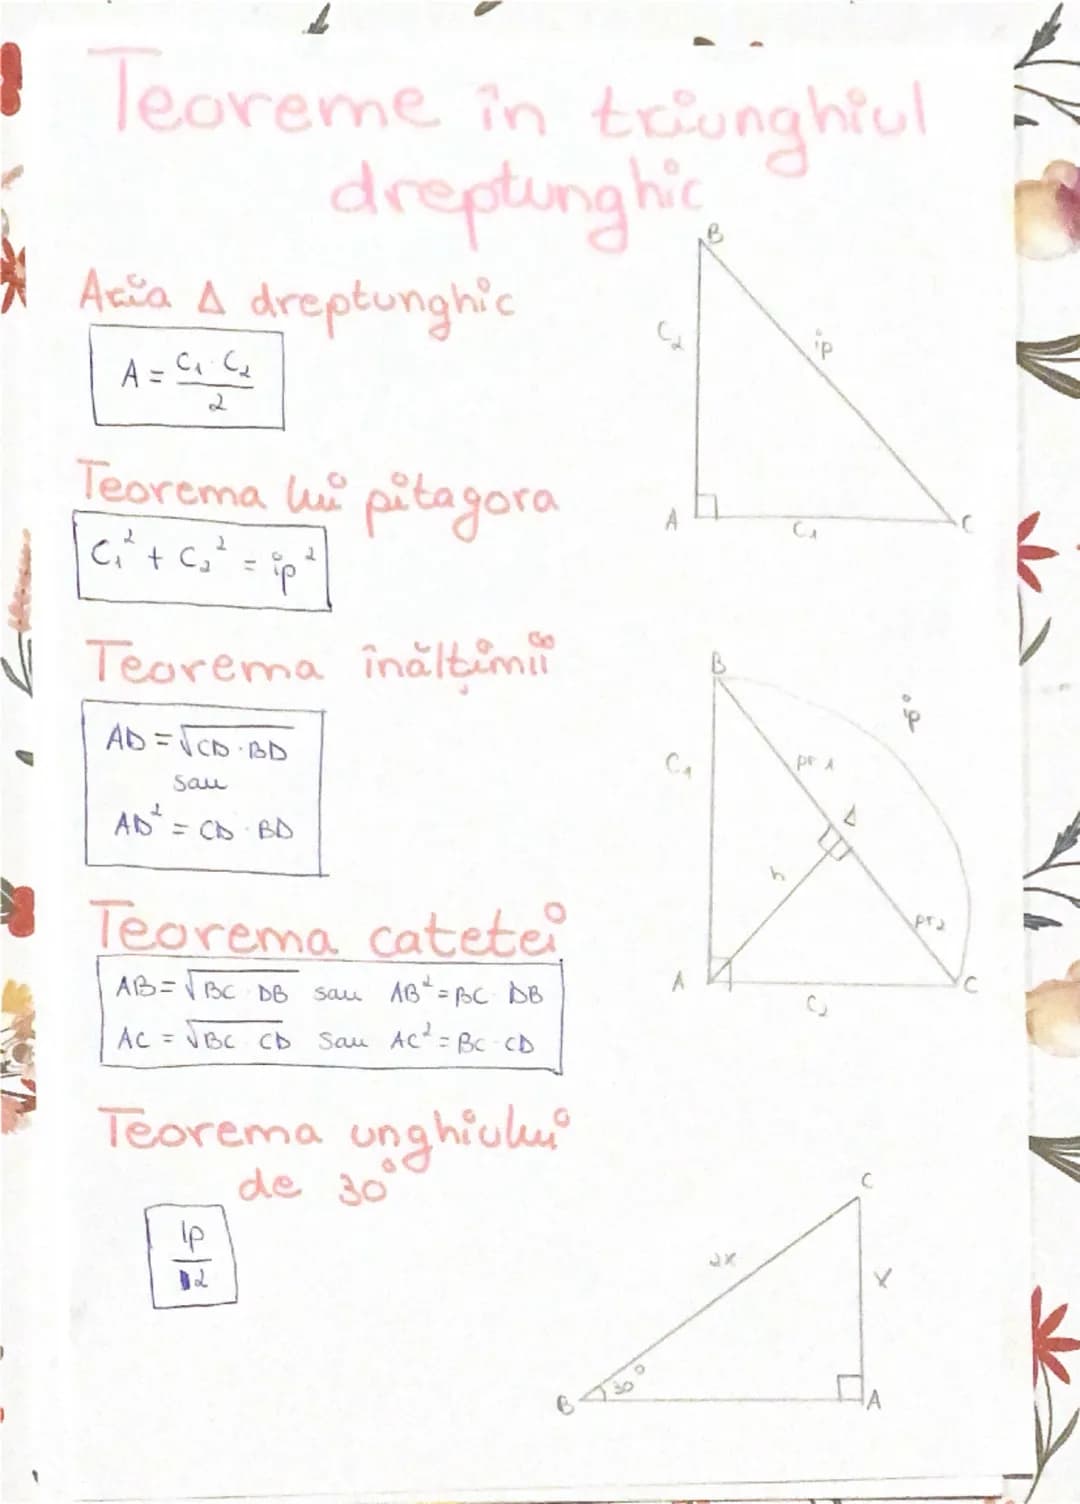 Teoreme în triunghiul
dreptunghic
Aria Δ dreptunghic
A = C₁ · C₂ / 2
Teorema lui pitagora
C₁² + C₂² = ip²
Teorema înălțimii
AD = √CD · BD
sau
AD² = CD · BD
Teorema catetei
AB = √BC · DB sau AB² = BC · DB
AC = √BC · CD sau AC² = BC · CD
Teorema unghiului
de 30°
ip / 2
B
C₂
ip
A
C₁
C
B
ip
C₁
pr 1
Δ
h
pr₂
A
C₂
C
C
2x
x
30°
B
A